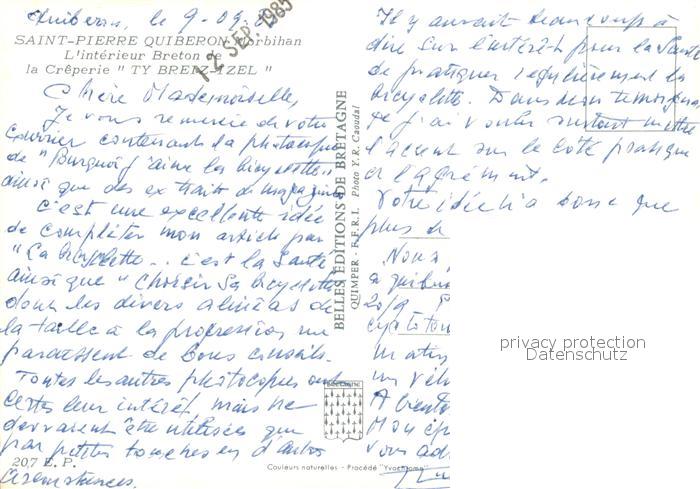 Quiberon, le 9-09-
12 SEP. 1985
SAINT-PIERRE QUIBERON Morbihan
L'intérieur Breton de
la Crêperie " TY BREIZ-IZEL "
Chère Mademoiselle,
Je vous remercie de votre
courrier contenant la photocopie
de "Pourquoi j'aime la bicyclette"
ainsi que des extraits de magazines
C'est une excellente idée
de compléter mon article par
"La bicyclette... c'est la Santé
ainsi que "Choisir sa bicyclette
dont les divers alinéas de
la taille à la progression me
paraissent de bons conseils.
Toutes les autres photocopies ont
certes leur intérêt mais ne
devraient être utilisées que
par petites touches en d'autres
circonstances.
207 E. P.
BELLES ÉDITIONS DE BRETAGNE
QUIMPER - F.E.R.I. Photo Y.R. Caoudal
BRETAGNE
Couleurs naturelles - Procédé "Yvochrome"
Il y aurait beaucoup à
dire sur l'intérêt pour la Santé
de pratiquer régulièrement la
bicyclette. Dans mon témoignage
j'ai voulu surtout mettre
l'accent sur le côté pratique
et l'agrément.
Votre idée n'a donc que
plus d
Nous
à Quiber
20/9
cyclotou
un vélo
A bientô
Mon ép
vous ad
privacy protection
Datenschutz